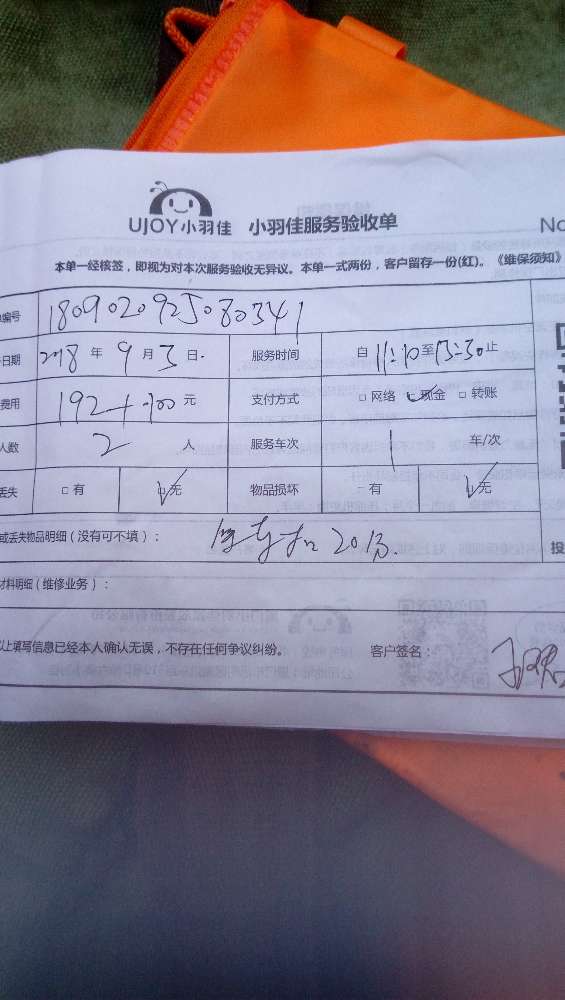 UJOY小羽佳 小羽佳服务验收单 No
本单一经核签，即视为对本次服务验收无异议。本单一式两份，客户留存一份(红)。《维保须知》
编号 1809020925080341
日期 2018 年 9 月 3 日 服务时间 自 11:10 至 13:30 止
费用 192+100 元 支付方式 □ 网络 □ 现金 □ 转账
人数 2 人 服务车次 1 车/次
丢失 □ 有 □ 无 物品损坏 □ 有 □ 无
或丢失物品明细（没有可不填）：
材料明细（维修业务）：
以上填写信息已经本人确认无误，不存在任何争议纠纷。 客户签名：
投